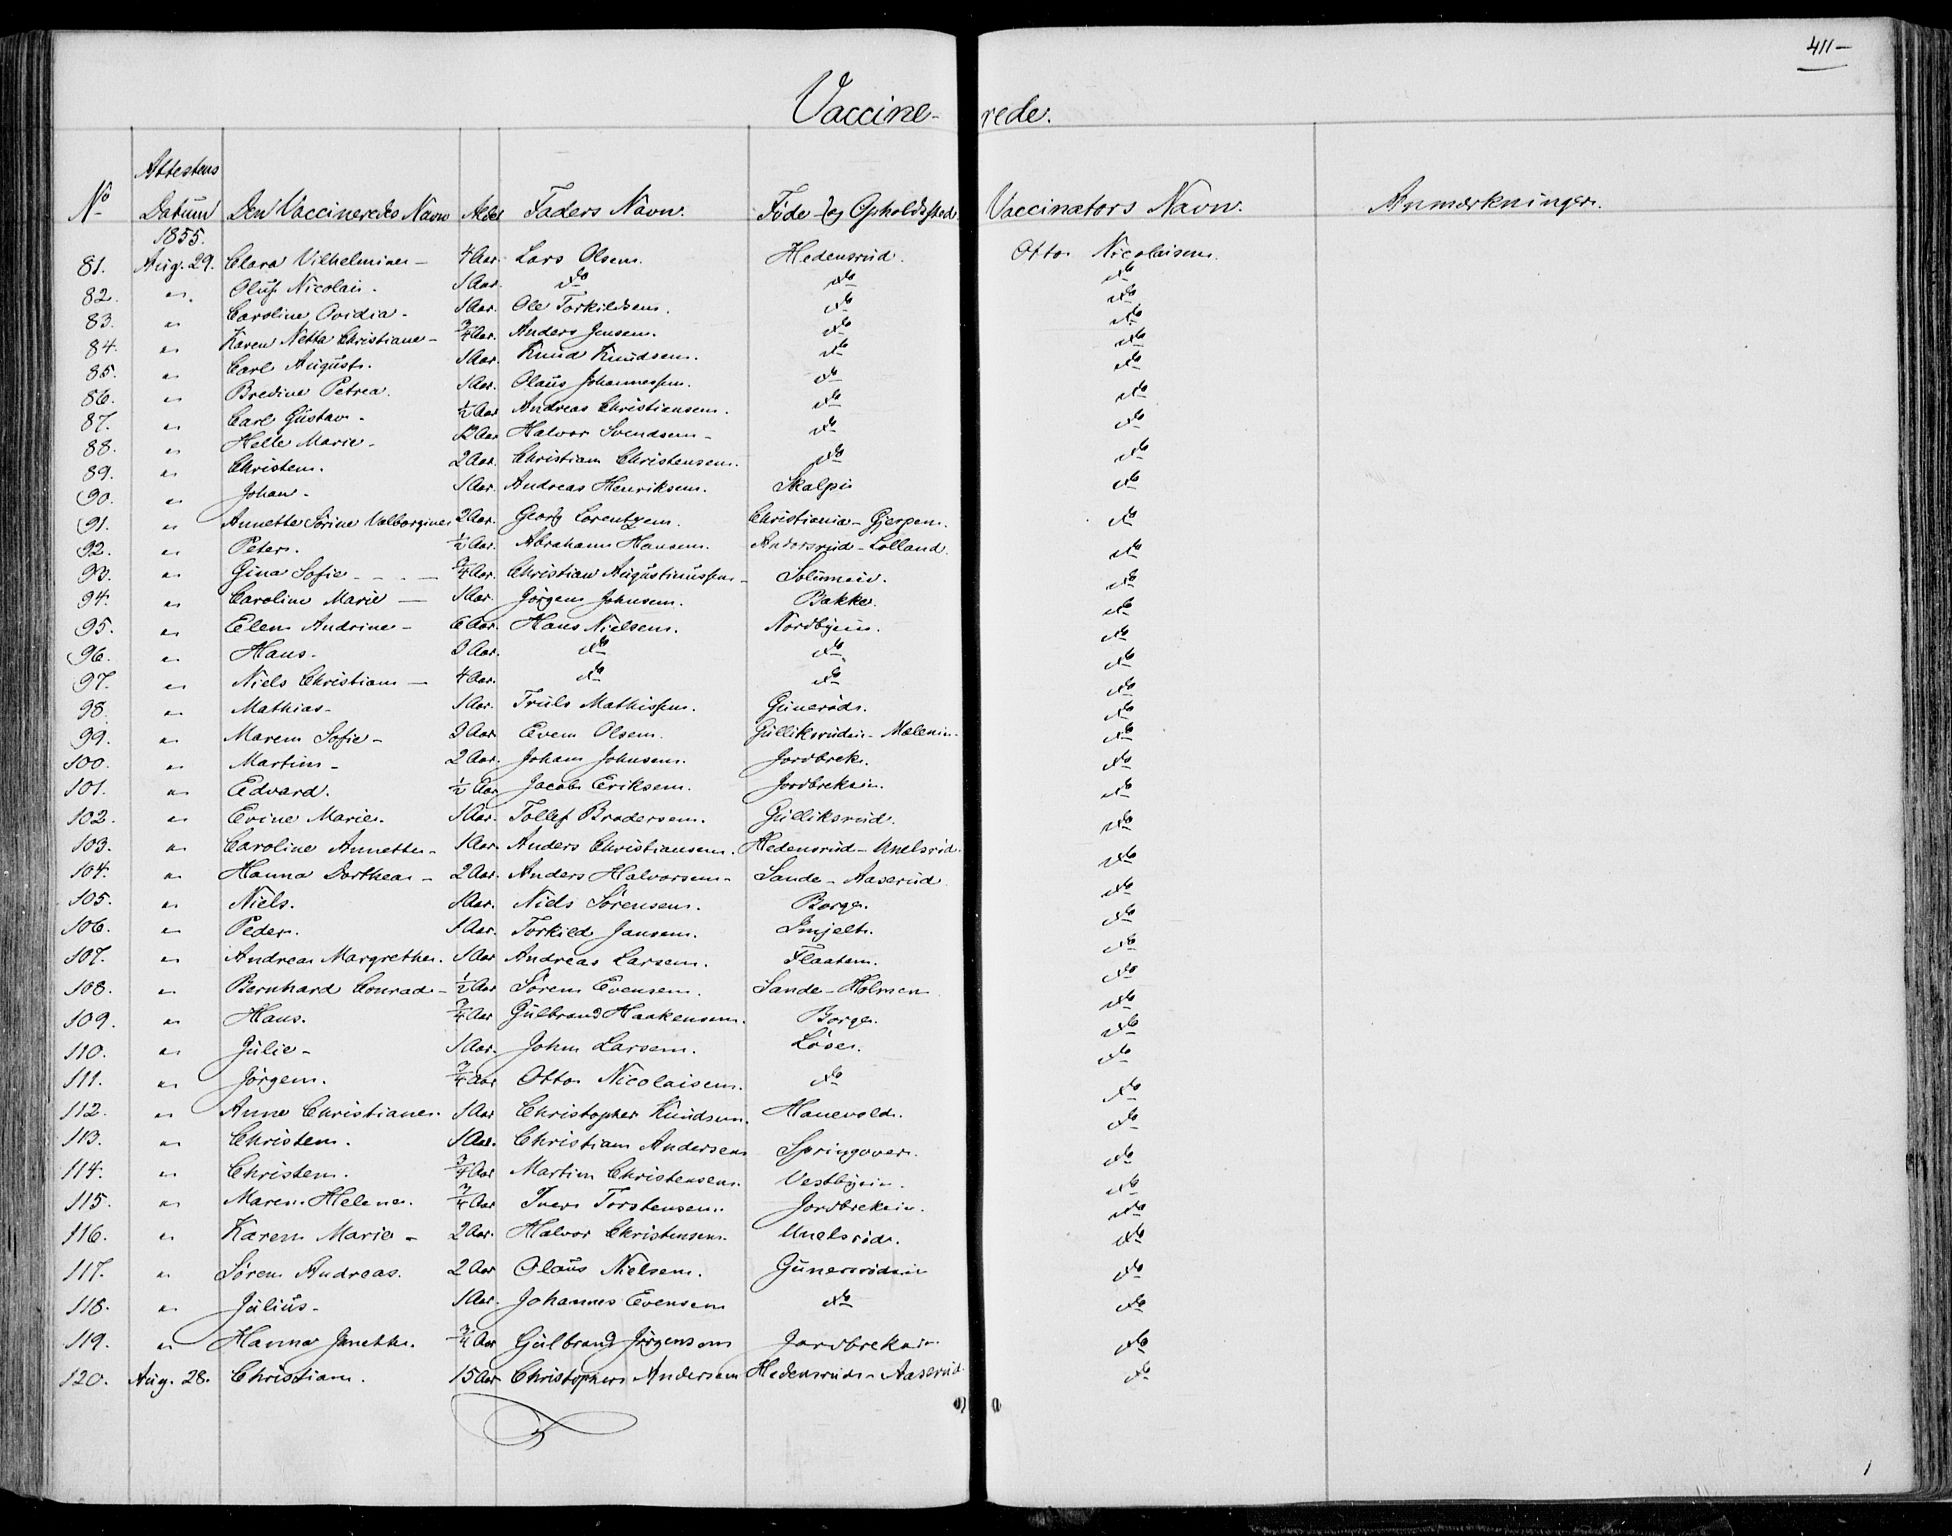 411-
Vaccine- rede.
No Attestens Datum Den Vaccineredes Navn Alder Faders Navn. Føde- og Opholdssted Vaccinators Navn. Anmærkninger.
1855.
81. Aug. 29. Clara Vilhelmine - 4 Aar. Lars Olsen. Hedensrud. Otto Nicolaisen.
82. " Oluf Nicolai. 1 Aar. do do do
83. " Caroline Ovidia - 1 Aar. Ole Torkildsen. do do
84. " Karen Netta Christiane - 3/4 Aar. Anders Jensen. do do
85. " Carl August. 1 Aar. Knud Knudsen. do do
86. " Bredine Petrea. 1 Aar. Olaus Johannessen. do do
87. " Carl Gustav - 1/2 Aar Andreas Christiansen. do do
88. " Helle Marie - 12 Aar Halvor Svendsen - do do
89. " Christen. 2 Aar. Christian Christensen. do do
90. " Johan - 1 Aar. Andreas Henriksen. Skalpi do
91. " Annette Sørine Valborgine 2 Aar. Georg Lorentzen. Christiania - Gjerpen. do
92. " Peter. 1/2 Aar. Abraham Hansen. Andorsrud - Lolland. do
93. " Gina Sofie - 3/4 Aar. Christian Augustinussen - Solumeie. do
94. " Caroline Marie - 1 Aar. Jørgen Johnsen. Bakke. do
95. " Elen Andrine - 6 Aar. Hans Nielsen. Nordbyeie. do
96. " Hans - 3 Aar. do do do
97. " Niels Christian - 4 Aar. do do do
98. " Mathias - 1 Aar. Truls Mathissen. Gunerød. do
99. " Maren Sofie - 3 Aar. Even Olsen. Gulliksrudei - Mælenin. do
100. " Martin - 2 Aar. Johan Johnsen. Jordbrek. do
101. " Edvard. 1/2 Aar Jacob Eriksen. Jordbrekein. do
102. " Evine Marie. 1 Aar. Tollef Brodersen. Gulliksrud. do
103. " Caroline Annette - 1 Aar. Anders Christiansen. Hedensrud - Unelsrød. do
104. " Hanna Dorthea - 2 Aar. Anders Halvorsen - Sande - Aaserud do
105. " Niels. 1 Aar. Niels Sørensen. Borge. do
106. " Peder. 1 Aar. Torkild Jansen. Smjelt. do
107. " Andrea Margrethe. 1 Aar Andreas Larsen. Flaaten. do
108. " Bernhard Conrad - 1/2 Aar Søren Evensen. Sande - Holmen do
109. " Hans. 3/4 Aar Gulbrand Haakensen. Borge. do
110. " Julie - 1 Aar. John Larsen. Løse. do
111. " Jørgen. 3/4 Aar Otto Nicolaisen. do do
112. " Anne Christiane. 1 Aar Christopher Knudsen. Hanevold. do
113. " Christen. 1 Aar. Christian Andersen Springover. do
114. " Christen. 3/4 Aar Martin Christensen. Vestbyein. do
115. " Maren Helene. 3/4 Aar Iver Torstensen. Jordbrekein. do
116. " Karen Marie - 2 Aar. Halvor Christensen. Unelsrød. do
117. " Søren Andreas. 2 Aar Olaus Nielsen. Gunerrødein do
118. " Julius - 1 Aar. Johannes Evensen do do
119. " Hanna Janette. 3/4 Aar Gulbrand Jørgensen Jordbrekein do
120. Aug. 28. Christian. 15 Aar Christopher Andersen Hedensrud - Aaserud. do